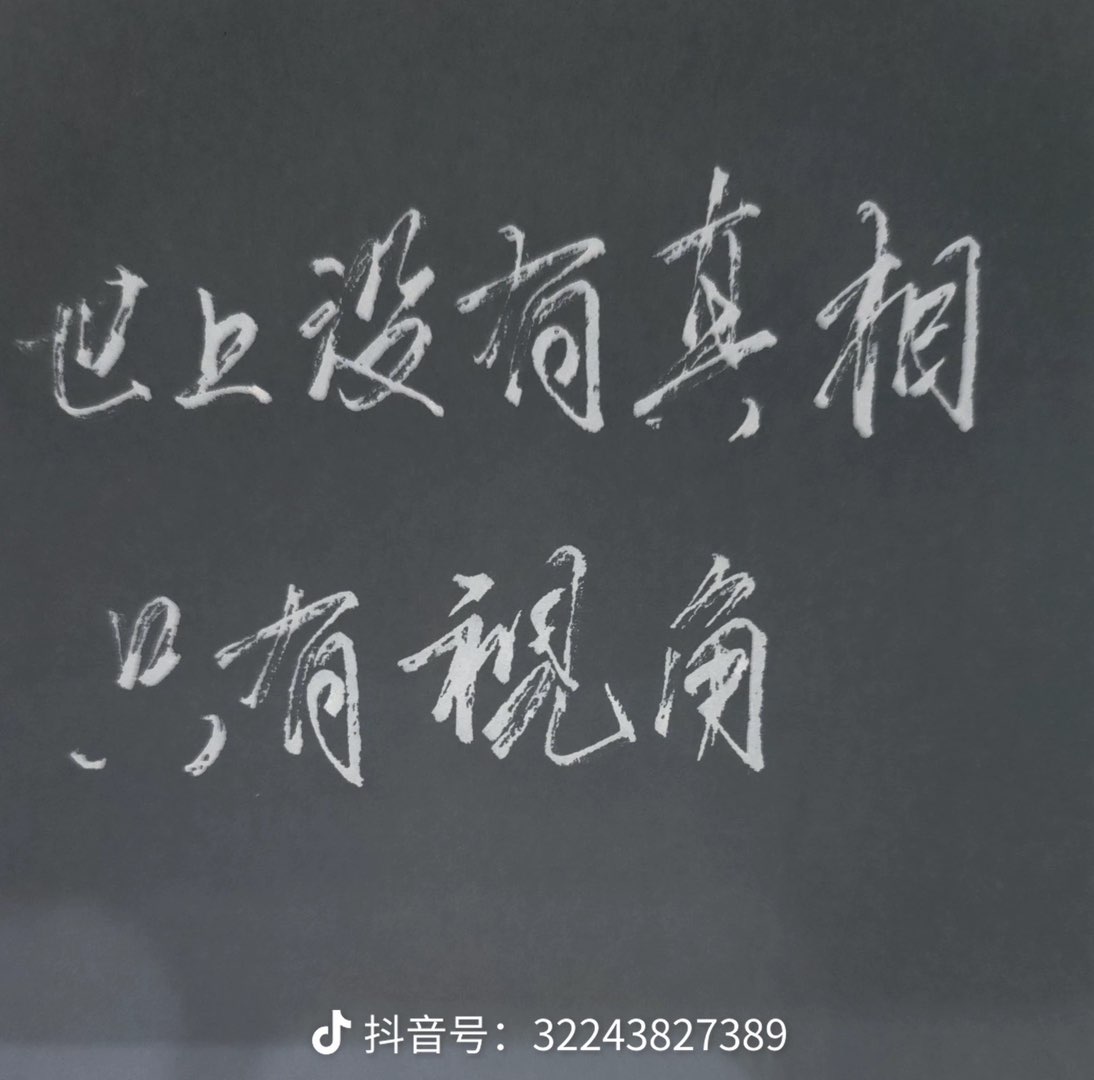 世上没有真相
只有视角
抖音号：32243827389